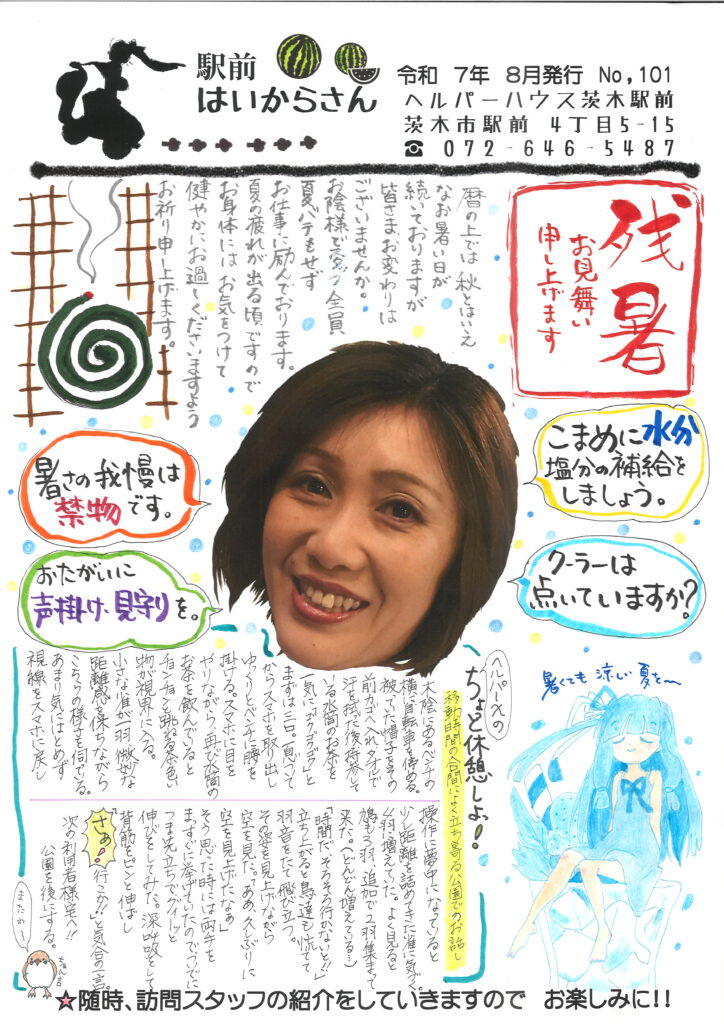 駅前
はいからさん
令和 7年 8月発行 No,101
ヘルパーハウス茨木駅前
茨木市駅前 4丁目5-15
☎ 072-646-5487
残暑
お見舞い
申し上げます
暦の上では 秋とはいえ
なお暑い日が
続いておりますが
皆さまお変わりは
ございませんか。
お陰様で
全員
夏バテもせず
お仕事に励んでおります。
夏の疲れが出る頃ですので
お身体には お気をつけて
健やかにお過しくださいますよう
お祈り申し上げます。
暑さの我慢は
禁物です。
こまめに水分
塩分の補給を
しましょう。
おたがいに
声掛け、見守りを。
クーラーは
点いていますか?
暑くても 涼しい夏を〜
ヘルパーXの
ちょと休憩しよ!
移動時間の合間によく立ち寄る公園でのお話し
木陰にあるベンチの
横に自転車を停める。
被っていた帽子をその
前カゴへ入れタオルで
汗を拭た後持参して
いる水筒のお茶を
一気に「ゴクゴクゴクッ」と
まずは三口。息ついて
からスマホを取り出し
ゆっくりとベンチに腰を
掛ける。スマホに目を
やりながら、再び水筒の
お茶を飲んでいると
チョンチョン跳ねる茶色い
物が視界に入る。
小さな雀が羽 微妙な
距離感を保ちながら
こちらの様子を伺ってる。
あまり気にはとめず
視線をスマホに戻し
操作に夢中になっていると
少し距離を詰めてきた雀に気づく。
4羽に増えてた。よく見ると
鳩も3羽、追加で2羽集まって
来た。(どんどん増えてる…)
「時間だ、そろそろ行かないと!!」
立ち上がると鳥達も慌てて
羽音をたて飛び立つ。
その姿を見上げながら
空を見た。「ああ、久しぶりに
空を見上げたなぁ」
そう思った時には両手を
ますぐに挙げていたのでついでに
つま先立ちでグイ〜ッと
伸びをしてみた。深呼吸をして
背筋をピンと伸ばし
「さぁ!行こか!!」と気合の一言。
次の利用者様宅へ!!
公園を後にする。
またね〜
☆随時、訪問スタッフの紹介をしていきますので お楽しみに!!